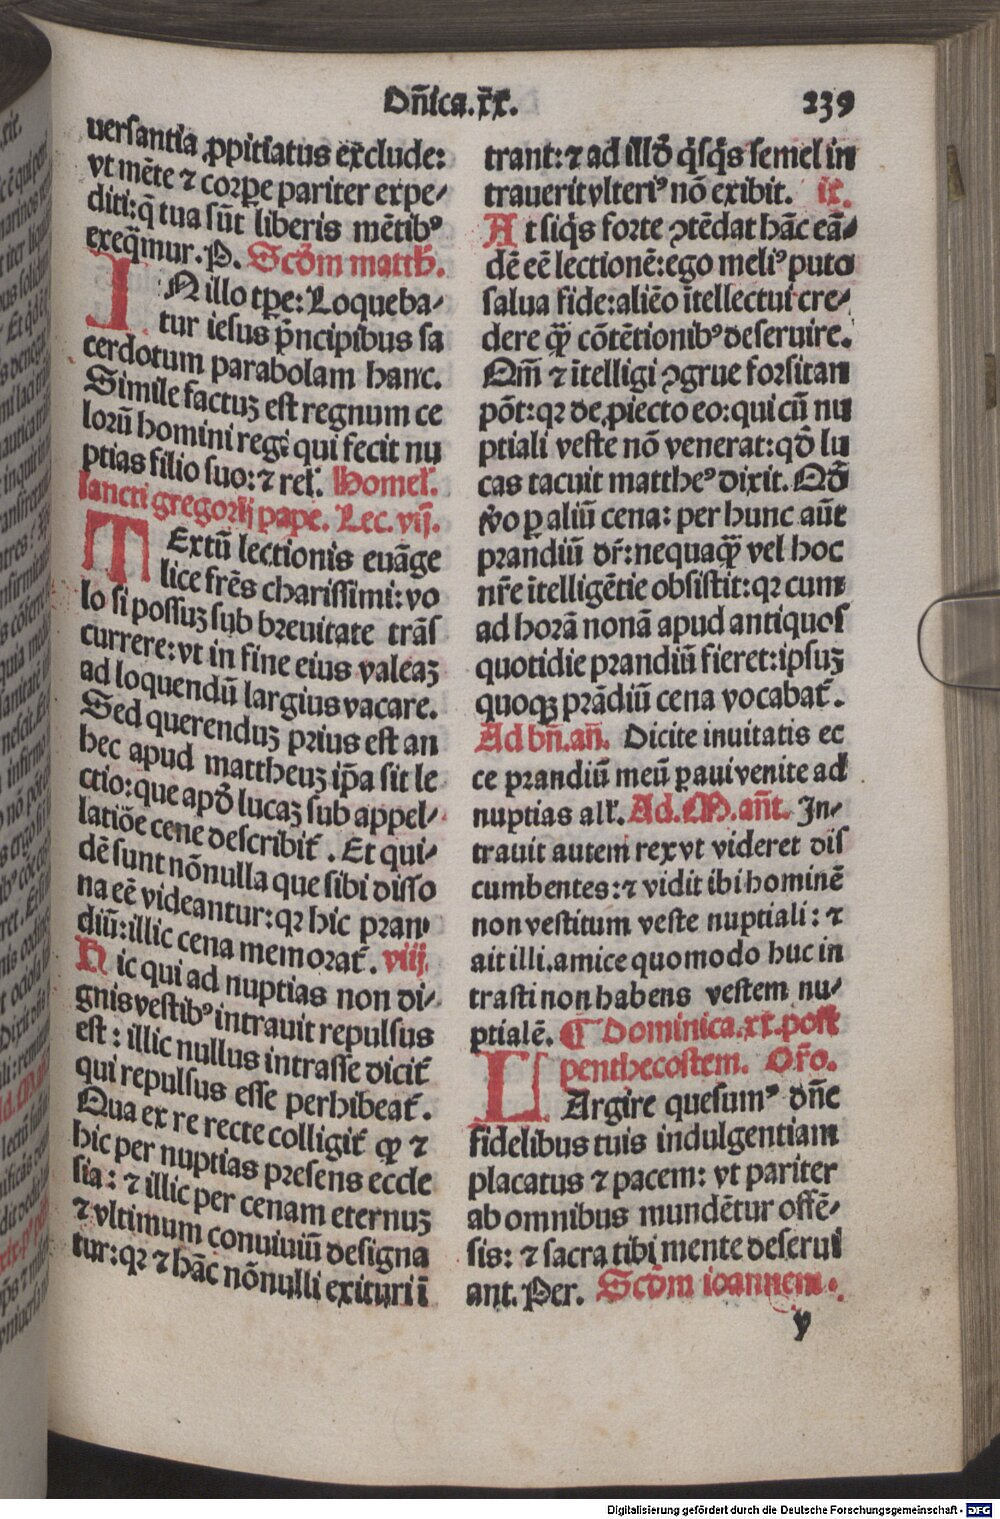 Dn̄ica.xx.
239
uersantia ꝓpitiatus exclude:
vt mēte ⁊ corꝑe pariter expe-
diti: q̄ tua sūt liberis mētibꝰ
exeq̄mur. P. Scd̄m matth̄.
IN illo tꝑe: Loqueba-
tur iesus pn̄cipibus sa
cerdotum parabolam hanc.
Simile factuꝫ est regnum ce
lorū homini regi qui fecit nu
ptias filio suo: ⁊ rel̄. Homel̄.
sancti gregorij pape. Lec. vij.
TExtū lectionis euāge
lice frēs charissimi: vo
lo si possuꝫ sub breuitate trās
currere: vt in fine eius valeaꝫ
ad loquendū largius vacare.
Sed querenduꝫ prius est an
hec apud mattheuꝫ ip̄a sit le
ctio: que apd̄ lucaꝫ sub appel-
latiōe cene describit̄. Et qui-
dē sunt nōnulla que sibi disso
na eē videantur: qꝛ hic pran
diū: illic cena memorat̄. viij.
Hic qui ad nuptias non di-
gnis vestibꝰ intrauit repulsus
est: illic nullus intrasse dicit̄
qui repulsus esse perhibeat̄.
Qua ex re recte colligit̄ ꝙ ⁊
hic per nuptias presens eccle
sia: ⁊ illic per cenam eternuꝫ
⁊ vltimum conuiuiū designa
tur: qꝛ ⁊ hāc nōnulli exituri ī
trant: ⁊ ad illō q̇sq̇s semel in
trauerit vlteriꝰ nō exibit. ix.
At siq̇s forte ꝯtēdat hāc eā-
dē eē lectionē: ego meliꝰ puto
salua fide: aliēo ītellectui cre-
dere q̄ꝫ cōtētionibꝰ deseruire.
Qm̄ ⁊ ītelligi ꝯgrue forsitan
pōt: qꝛ de ꝓiecto eo: qui cū nu
ptiali veste nō venerat: qd̄ lu
cas tacuit mattheꝰ dixit. Qd̄
ỽo ꝑ aliū cena: per hunc aūt
prandiū dr̄: nequaq̄ꝫ vel hoc
nr̄e ītelligētie obsistit: qꝛ cum
ad horā nonā apud antiquos
quotidie prandiū fieret: ipsuꝫ
quoqꝫ prādiū cena vocabat̄.
Ad bn̄. an̄. Dicite inuitatis ec
ce prandiū meū ꝑaui venite ad
nuptias all̄. Ad. M. an̄t. In-
trauit autem rex vt videret dis
cumbentes: ⁊ vidit ibi hominē
non vestitum veste nuptiali: ⁊
ait illi. amice quomodo huc in
trasti non habens vestem nu-
ptialē. ¶ Dominica. xx. post
penthecostem. Or̄o.
LArgire quesumꝰ dn̄e
fidelibus tuis indulgentiam
placatus ⁊ pacem: vt pariter
ab omnibus mundētur offē-
sis: ⁊ sacra tibi mente deserui
ant. Per. Scd̄m ioannem.
y
Digitalisierung gefördert durch die Deutsche Forschungsgemeinschaft - DFG